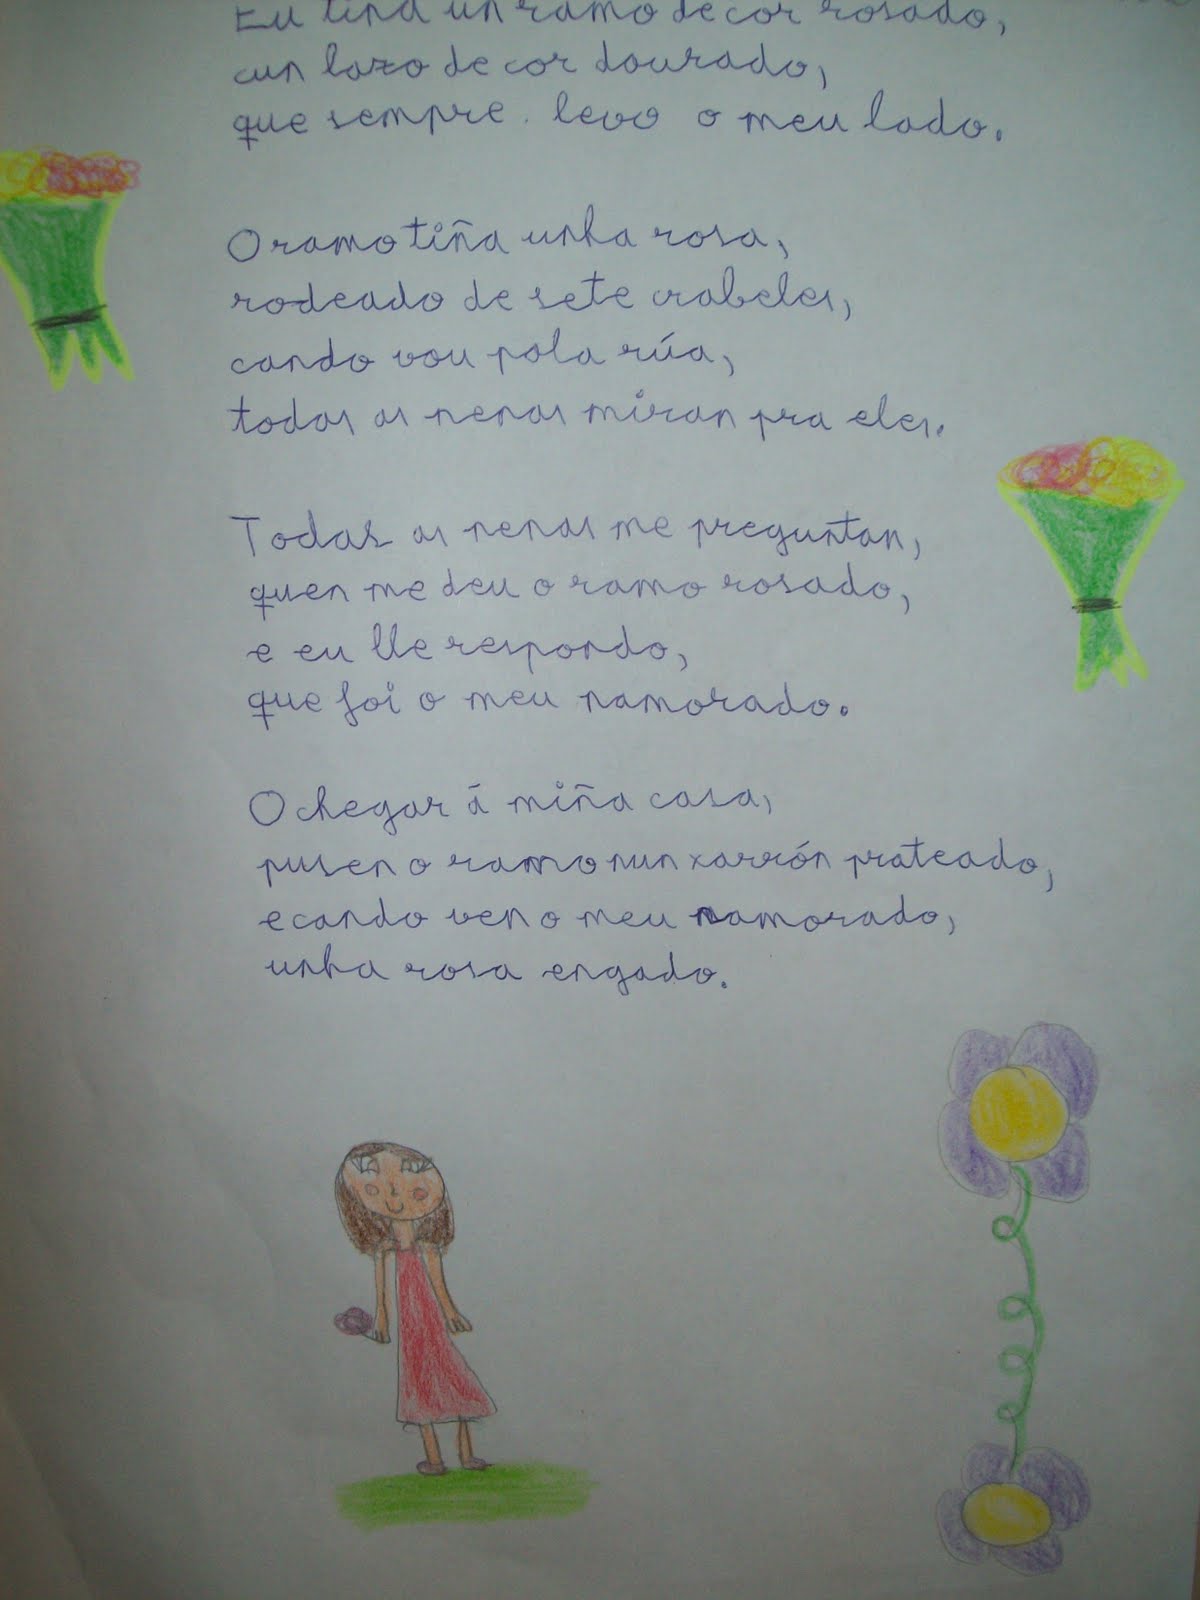 Eu tiña un ramo de cor rosado,
cun lazo de cor dourado,
que sempre levo o meu lado.
O ramo tiña unha rosa,
rodeado de sete crabeles,
cando vou pola rúa,
todas as nenas miran pra eles.
Todas as nenas me preguntan,
quen me deu o ramo rosado,
e eu lle respondo,
que foi o meu namorado.
O chegar á miña casa,
pusen o ramo nun xarrón prateado,
e cando ven o meu namorado,
unha rosa engado.